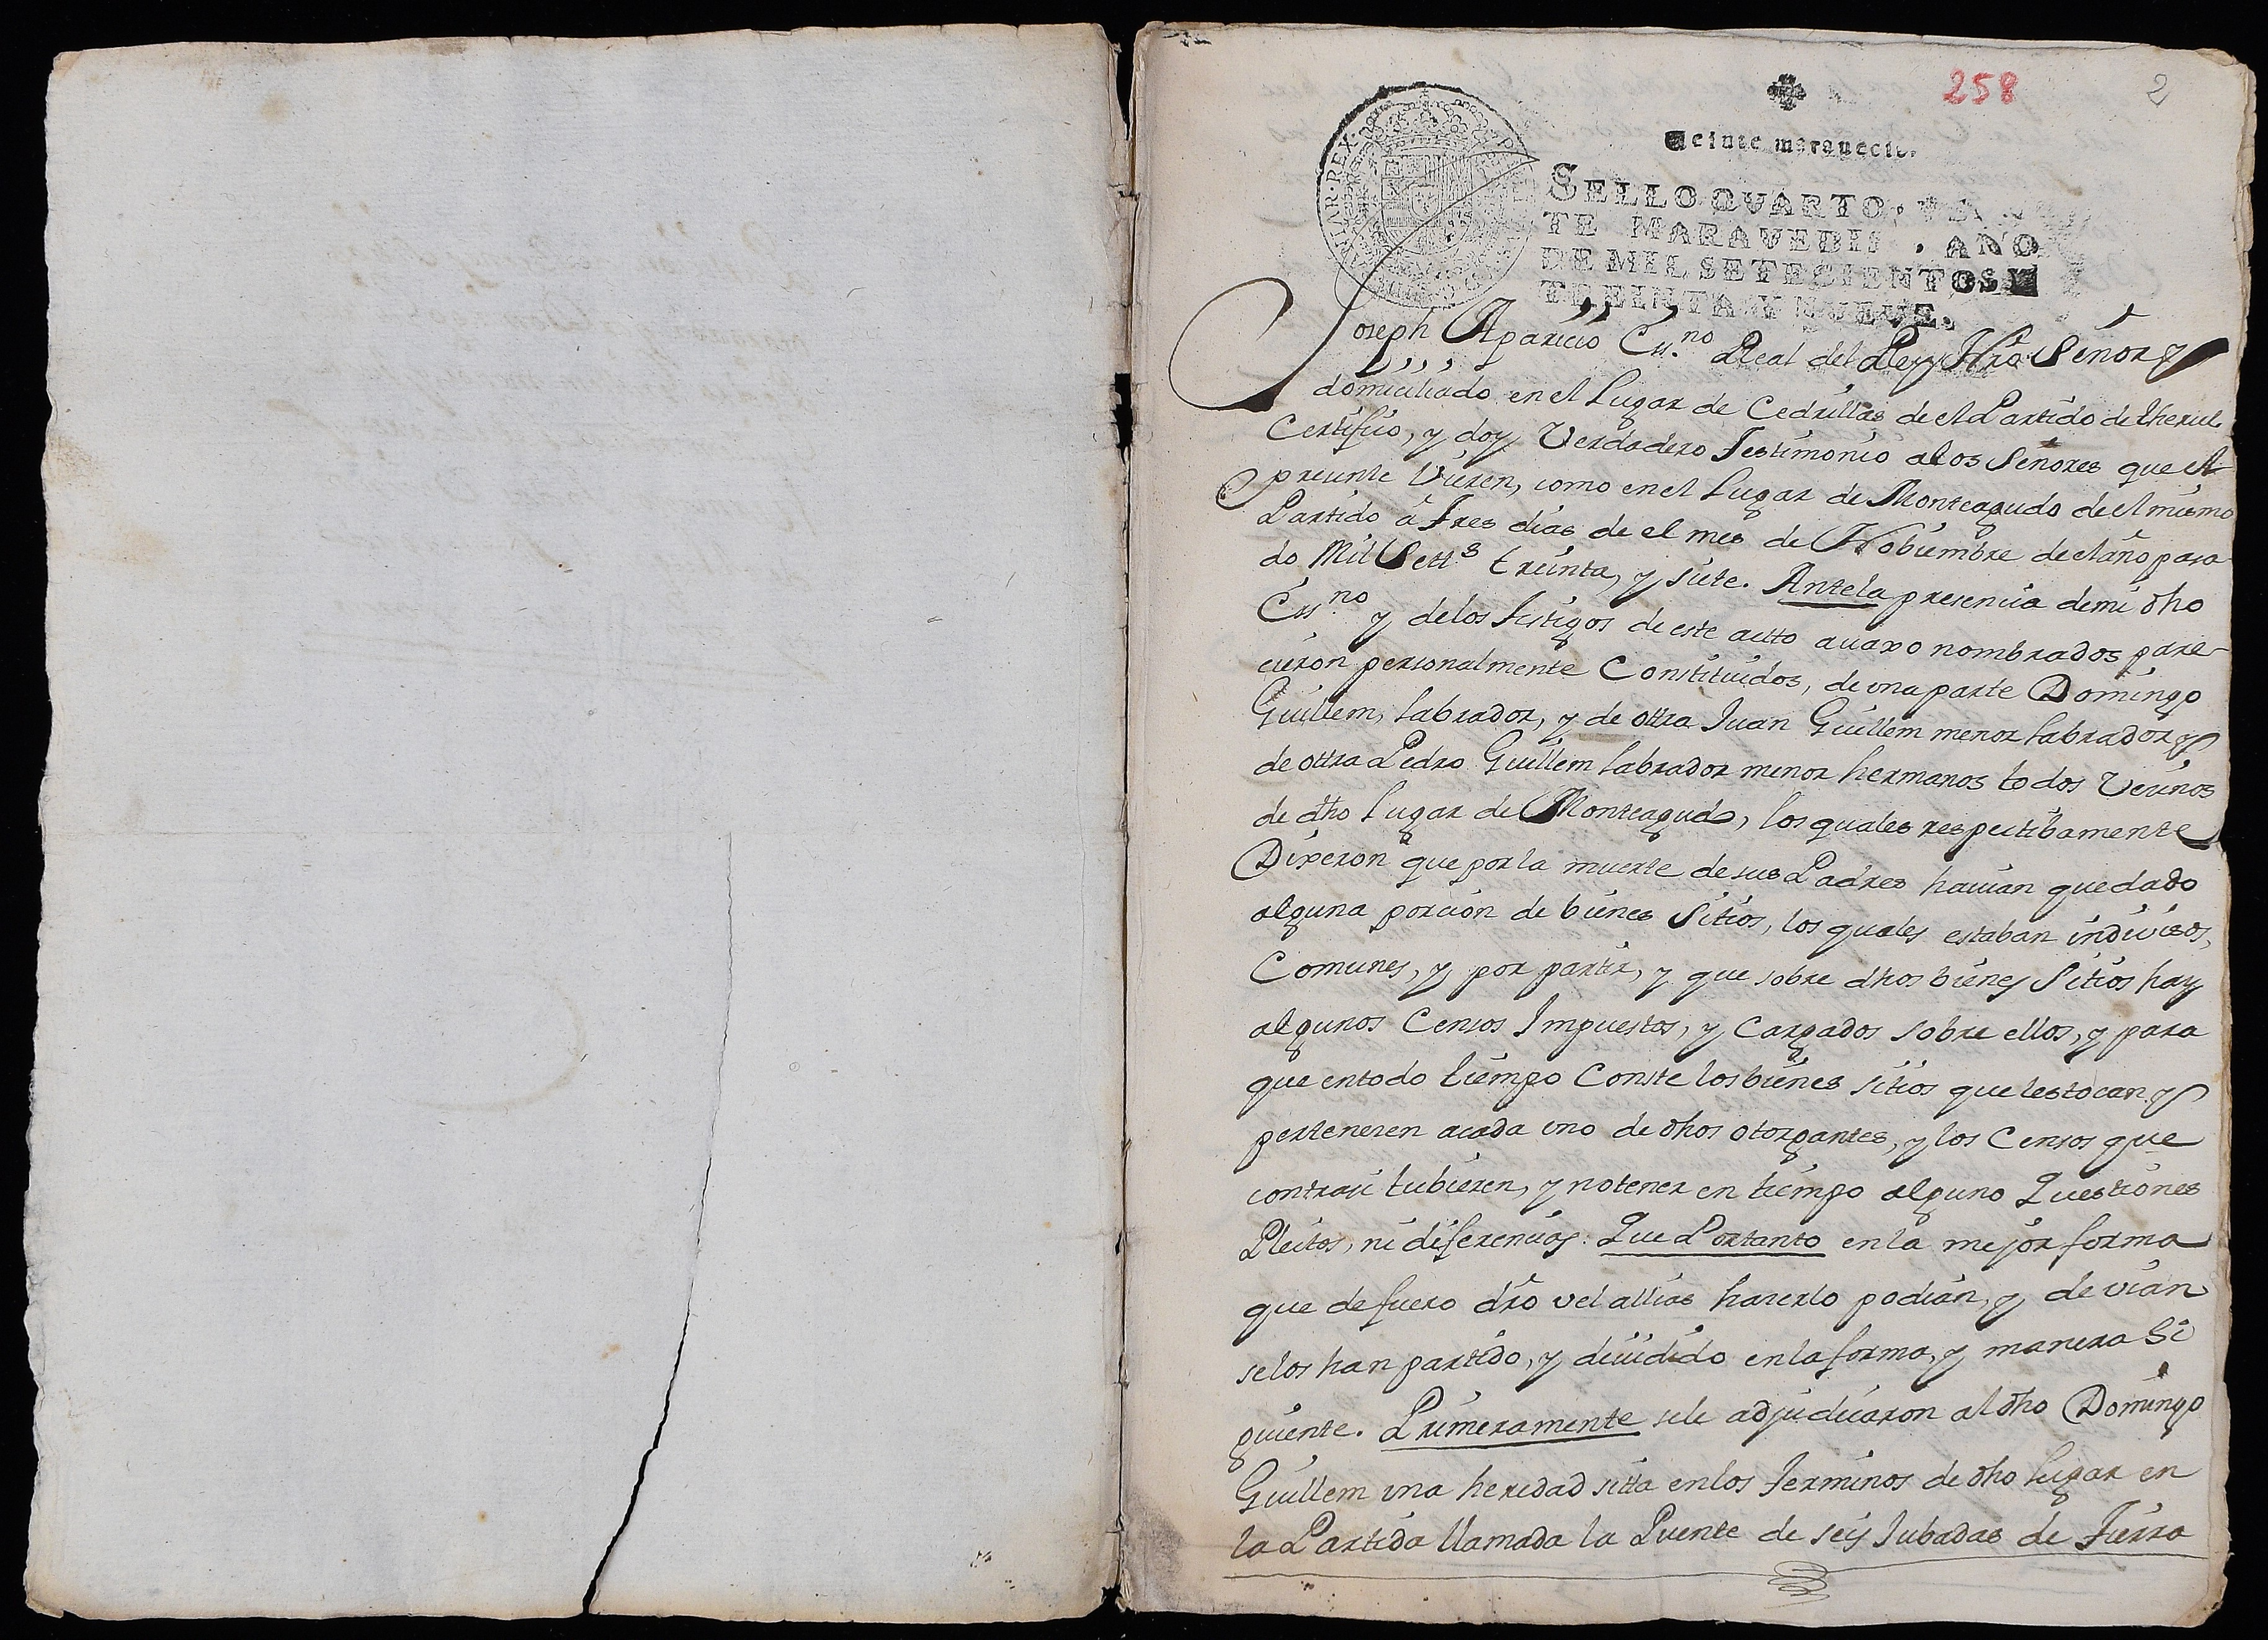 258
2
Veinte maravedis.
SELLO QVARTO.
TE MARAVEDIS, AÑO
DE MIL SETECIENTOS Y
TREINTA Y NUEVE.
Joseph Aparicio Ess.no Real del Rey Nro Señor y
domiciliado en el Lugar de Cedrillas de el Partido de theruel
Certifico, y doy Verdadero Testimonio a los Señores que el
preunte Vieren, como en el Lugar de Monteagudo de el mismo
Partido â tres dias de el mes de Nobiembre de el año pasa-
do Mil Sett.s treinta, y siete. Ante la presencia de mi dho
Ess.no y de los testigos de este actto avaxo nombrados pare-
cieron personalmente Constituidos, de una parte Domingo
Guillem, labrador, y de ottra Juan Guillem menor labrador y
de ottra Pedro Guillem labrador menor hermanos todos Vecinos
de dho Lugar de Monteagudo, los quales respectibamente
Dixeron que por la muerte de sus Padres havian quedado
alguna porcion de bienes Sitios, los quales estaban indivisos,
Comunes, y por partir, y que sobre dhos bienes Sitios hay
algunos Censos Impuestos, y Cargados sobre ellos, y para
que en todo tiempo Conste los bienes sitios que les tocan y
pertenecen a cada uno de dhos otorgantes, y los Censos que
contra si tubieren, y no tener en tiempo alguno Questiones
Pleitos, ni diferencias: Que Portanto en la mejor forma
que de fuero dro vel allias hacerlo podian, y devian
se los han partido, y dividido en la forma, y manera Si
guiente. Primeramente se le adjudicaron al dho Domingo
Guillem una heredad sitta en los terminos de dho lugar en
la Partida llamada la Puente de seis Jubadas de Tierra